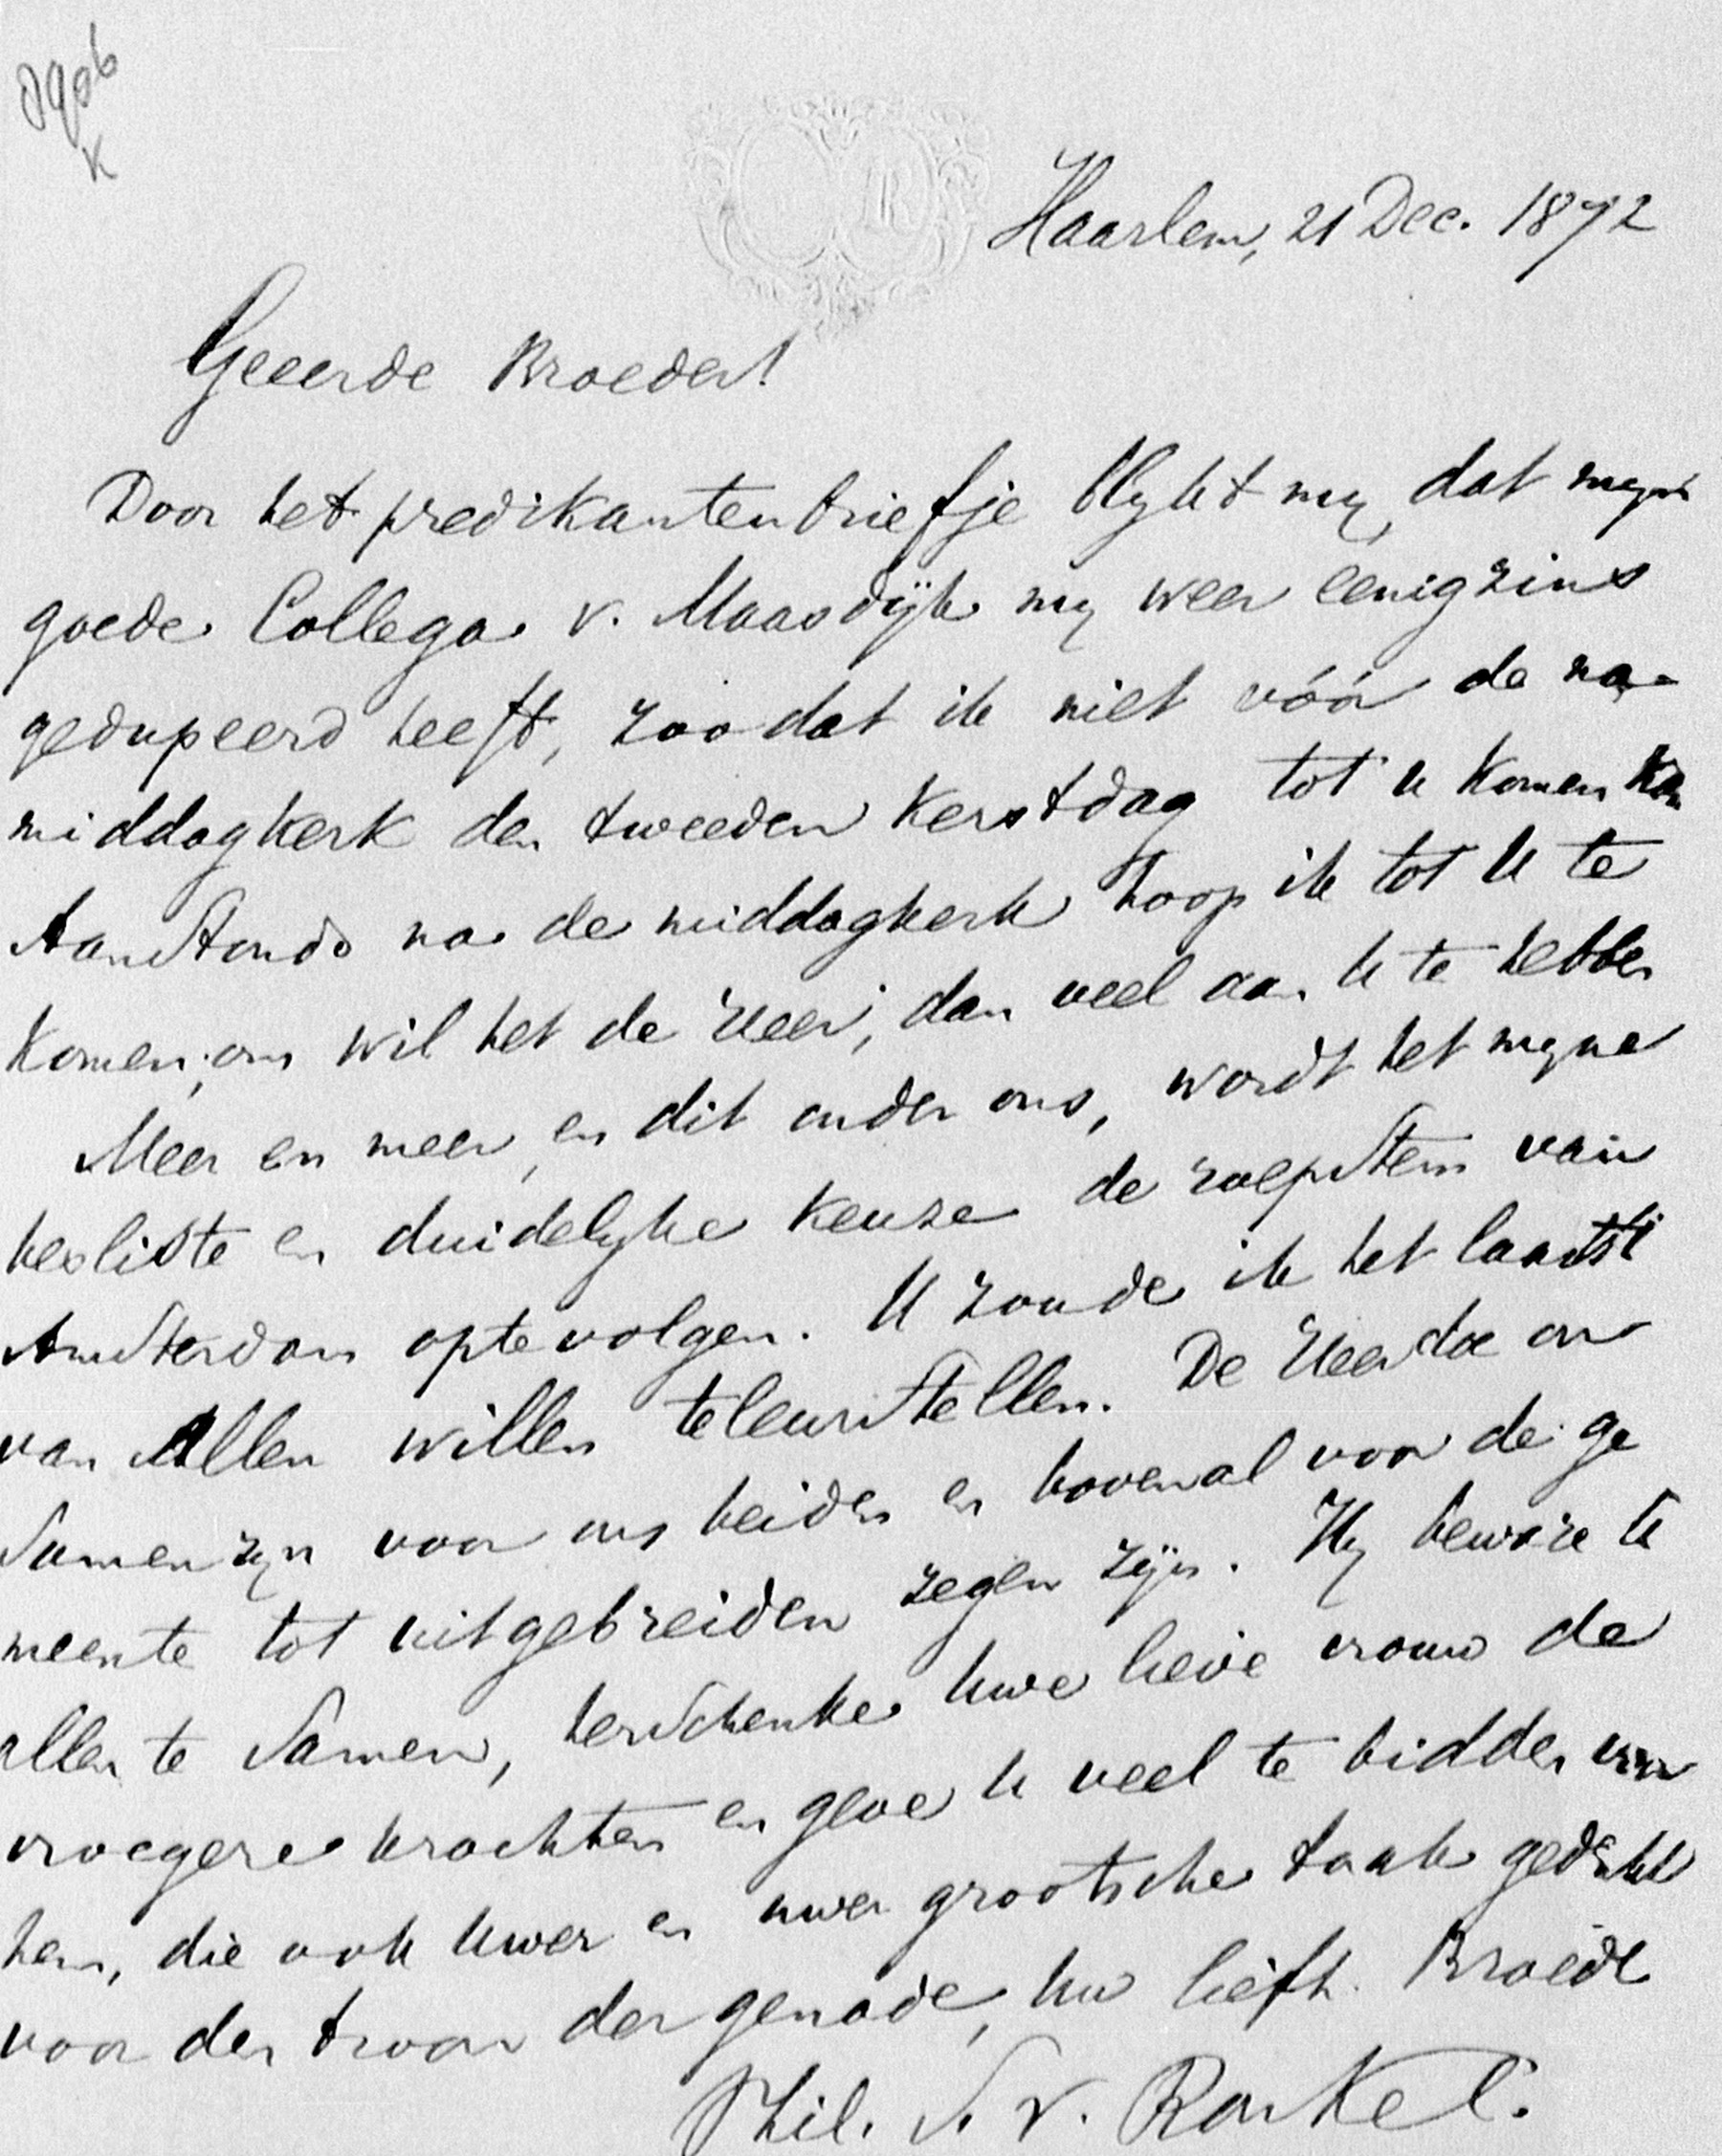 Haarlem, 21 Dec. 1872
Geeerde Broeder!
Door het predikantenbriefje blykt my, dat myn
goede Collega v. Maasdijk my weer eenigzins
gedupeerd heeft, zoodat ik niet vóór de na-
middagkerk den tweeden Kerstdag tot u komen kan
Aanstonds na de middagkerk hoop ik tot U te
komen, om wil het de Heer, dan veel aan U te hebben
Meer en meer, en dit onder ons, wordt het myne
besliste en duidelyke keuze de roepstem van
Amsterdam optevolgen. U zoude ik het laatst
van Allen willen teleurstellen. De Heer doe ons
Samenzyn voor ons beiden en bovenal voor de ge
meente tot uitgebreiden zegen zijn. Hy beware U
allen te Samen, herschenke Uwe lieve vrouw de
vroegere krachten en geve U veel te bidden voor
hem, die ook Uwer en uwer grootsche taak gedenkt
voor den troon der genade, Uw liefh. Broeder
Phil. S. v. Ronkel.